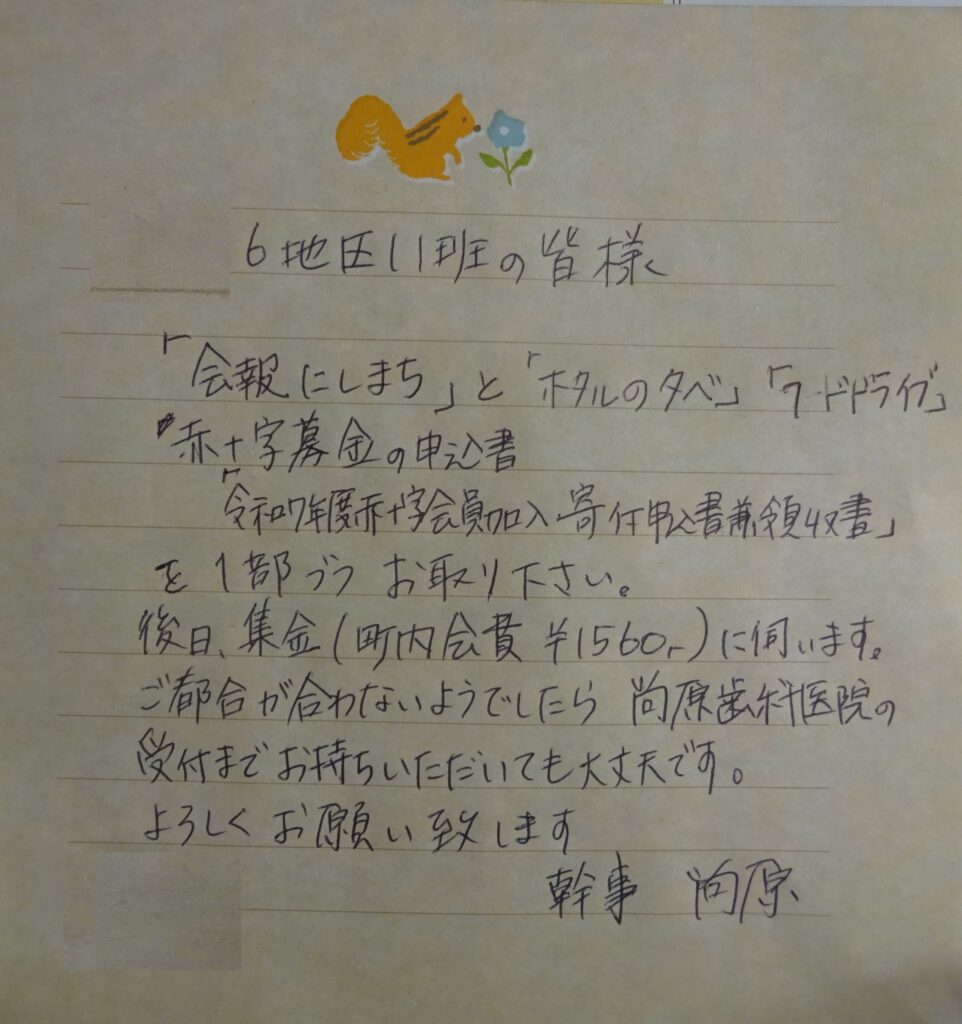 6地区11班の皆様
「会報にしまち」と「ホタルの夕べ」「フードドライブ」
赤十字募金の申込書
「令和7年度赤十字会員加入・寄付申込書兼領収書」
を1部づつお取り下さい。
後日、集金(町内会費 ¥1560-)に伺います。
ご都合が合わないようでしたら 尚原歯科医院の
受付までお持ちいただいても大丈夫です。
よろしくお願い致します
幹事 尚原